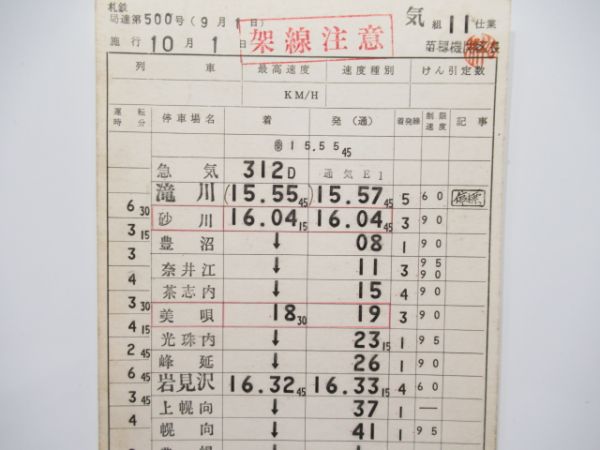 札鉄
局達第500号(9月1日)
施行10月1日
架線注意
気組11仕業
列車 最高速度 速度種別 けん引定数
KM/H
運転時分 停車場名 着 発(通) 着発線 制限速度 記事
15.55 45
急気 312D 通気E1
滝川 (15.55 45) 15.57 45 5 60
6 30
砂川 16.04 15 16.04 45 3 90
3 15
豊沼 ↓ 08 1 90
3
奈井江 ↓ 11 3 95 90
4
茶志内 ↓ 15 4 90
3 30
美唄 18 30 19 3 90
4 15
光珠内 ↓ 23 15 1 95
2 45
峰延 ↓ 26 1 90
6 45
岩見沢 16.32 45 16.33 15 4 60
3 45
上幌向 ↓ 37 1 —
4
幌向 ↓ 41 1 95